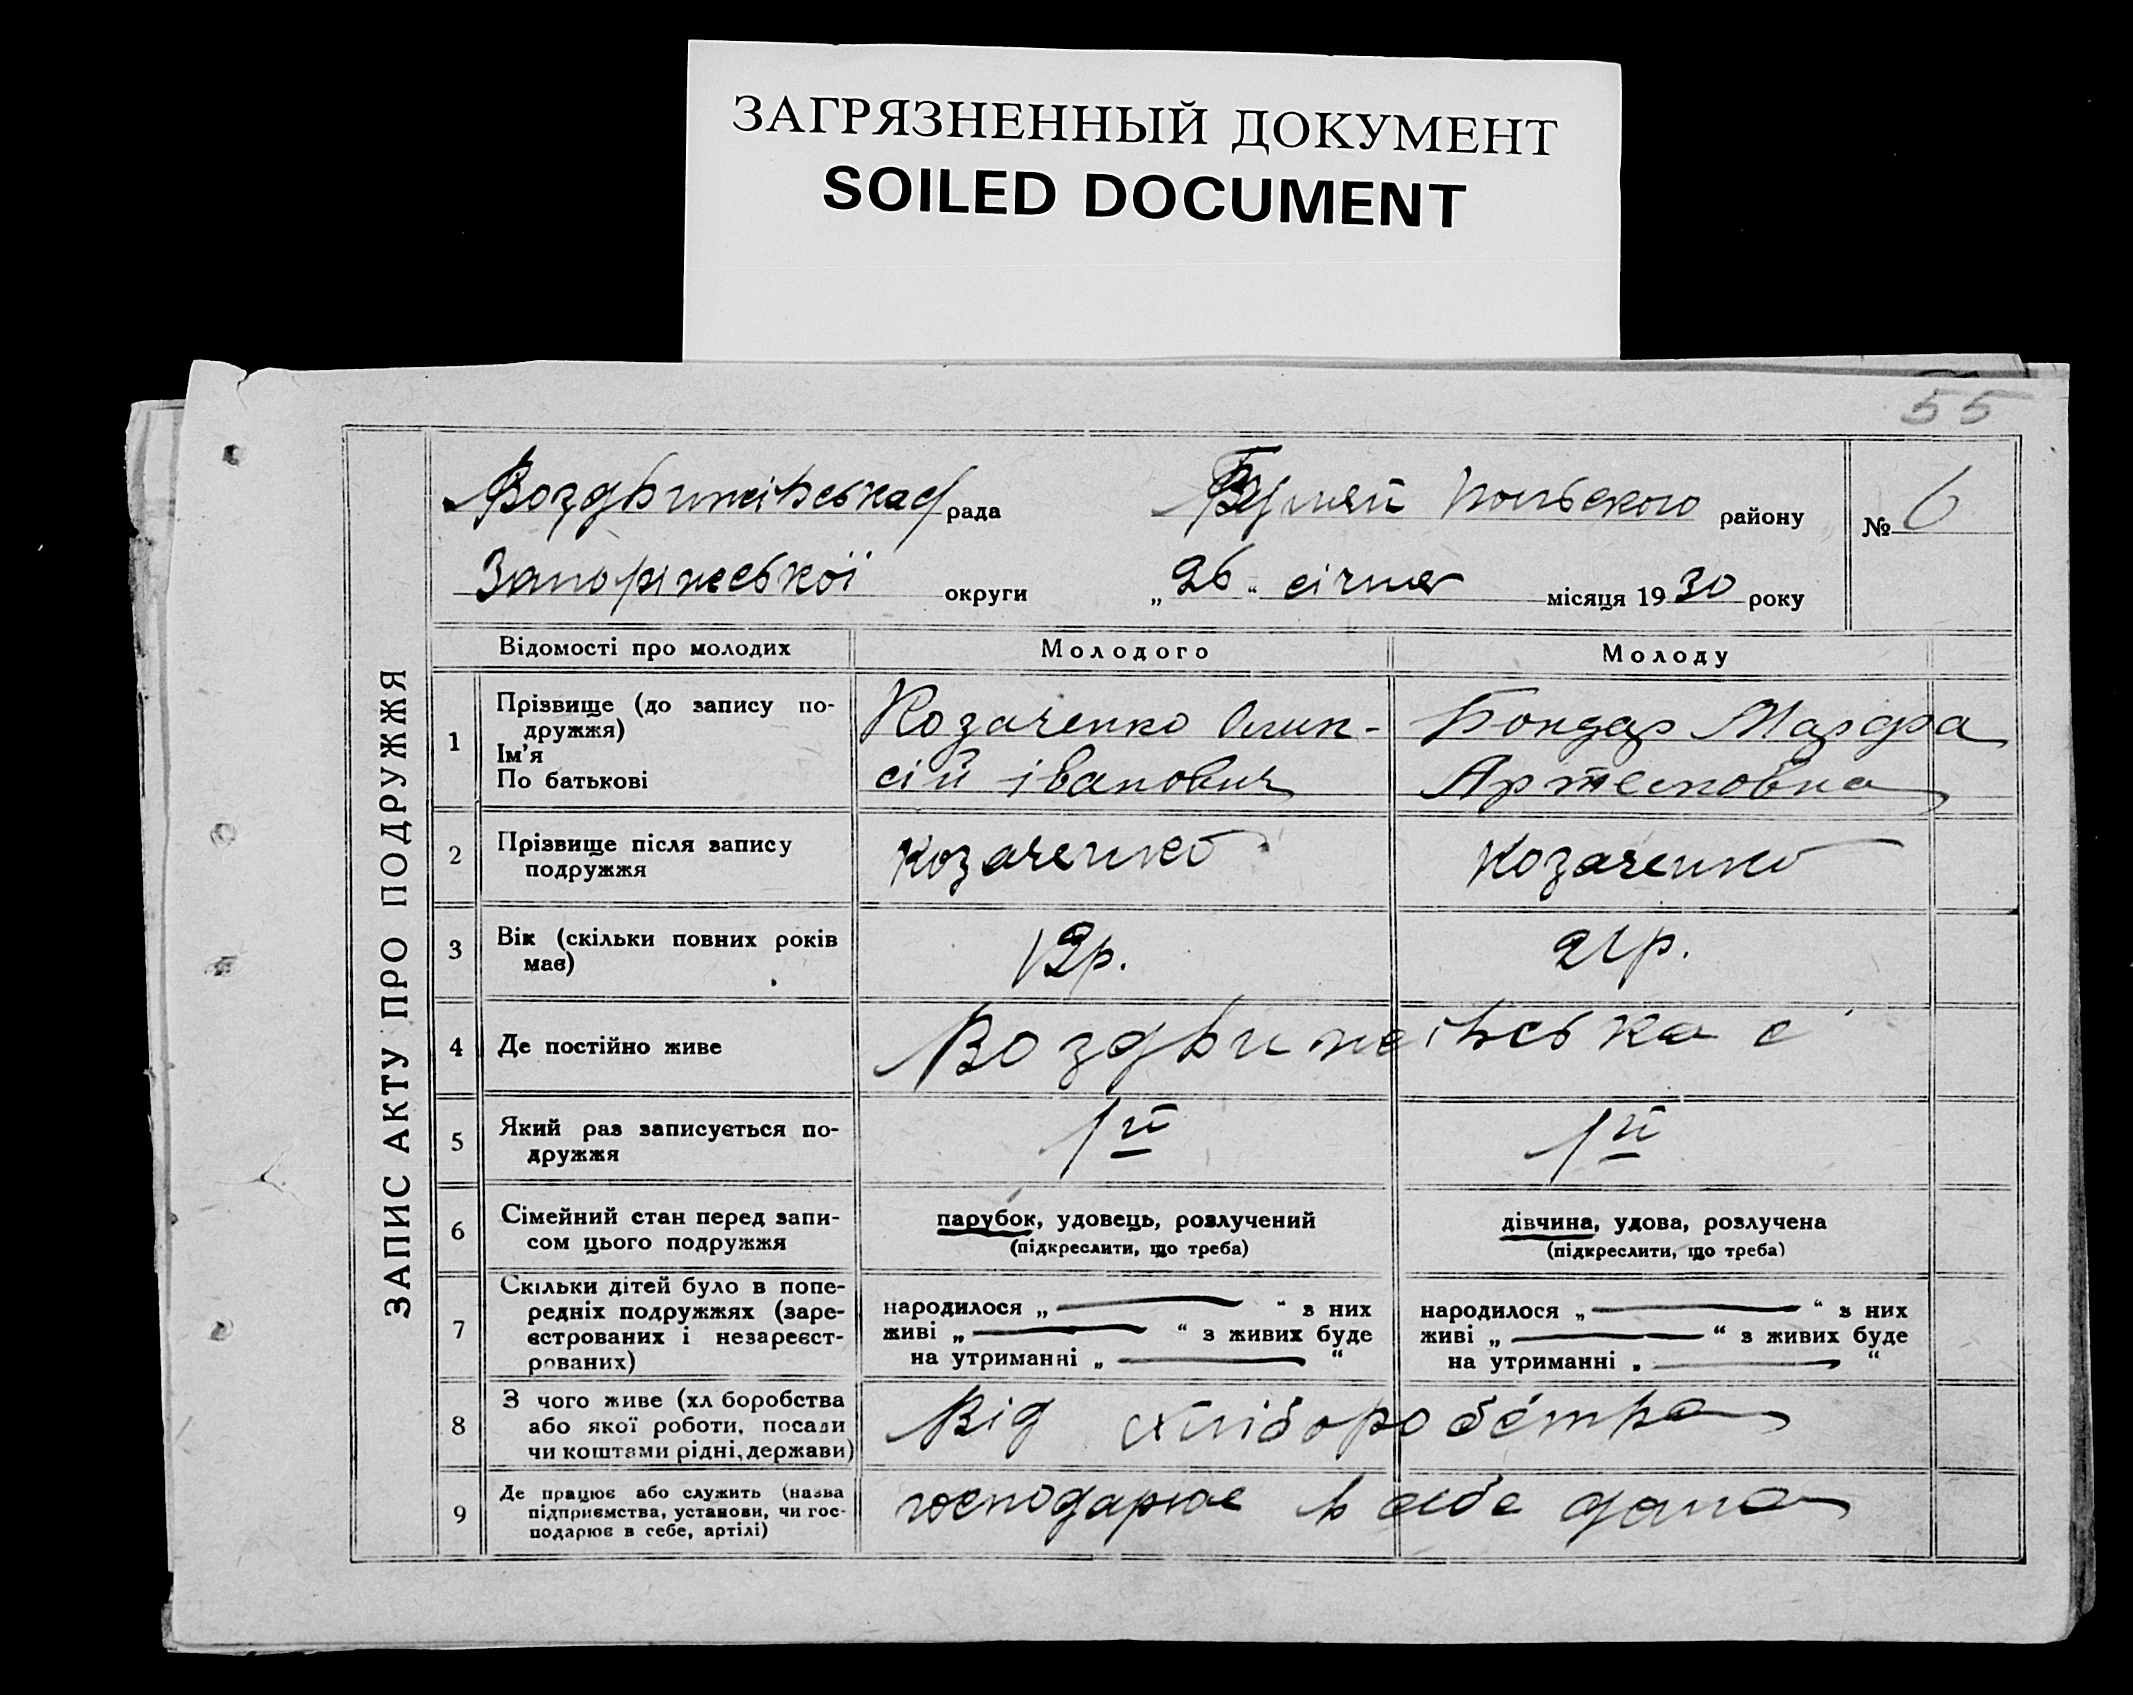 ЗАГРЯЗНЕННЫЙ ДОКУМЕНТ
SOILED DOCUMENT
55
ЗАПИС АКТУ ПРО ПОДРУЖЖЯ
Воздвижівська с/рада польского району № 6
Запоріжської округи „26“ січня місяця 1930 року
Відомості про молодих Молодого Молоду
1 Прізвище (до запису по-
дружжя)
Ім'я
По батькові
Козаченко Олик-
сій іванович
Бондар Марфа
Артемовна
2 Прізвище після запису
подружжя
Козаченко Козаченко
3 Вік (скільки повних років
має)
р. 21р.
4 Де постійно живе Воздвижівська с
5 Який раз записується по-
дружжя
1й 1й
6 Сімейний стан перед запи-
сом цього подружжя
парубок, удовець, розлучений
(підкреслити, що треба)
дівчина, удова, розлучена
(підкреслити, що треба)
7 Скільки дітей було в попе-
редніх подружжях (заре-
єстрованих і незареєст-
рованих)
народилося „ “ з них
живі „ “ з живих буде
на утриманні „ “
народилося „ “ з них
живі „ “ з живих буде
на утриманні „ “
8 З чого живе (хл боробства
або якої роботи, посади
чи коштами рідні, держави)
Від хліборобства
9 Де працює або служить (назва
підприємства, установи, чи гос-
подарює в себе, артілі)
господарює в себе дома